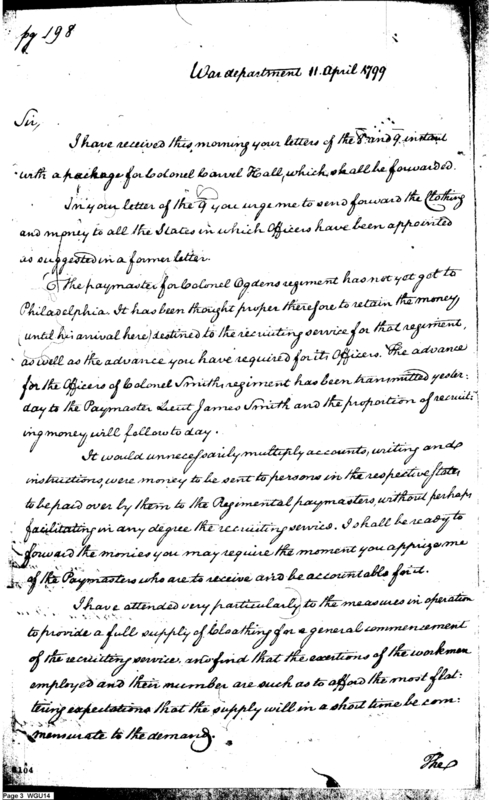 pg 198
War department 11 April 1799
Sir,
I have received this morning your letters of the 8 and 9 instant
with a package for Colonel Carvel Hall, which shall be forwarded.
In your letter of the 9 you urge me to send forward the Clothing
and money to all the States in which Officers have been appointed
as suggested in a former letter.
The paymaster for Colonel Ogdens regiment has not yet got to
Philadelphia. It has been thought proper therefore to retain the money
(until his arrival here) destined to the recruiting service for that regiment,
as well as the advance you have required for its Officers. The advance
for the Officers of Colonel Smiths regiment has been transmitted yester:
day to the Paymaster Lieut James Smith and the proportion of recruit:
ing money will follow to day.
It would unnecessarily multiply accounts, writing and
instructions were money to be sent to persons in the respective States
to be paid over by them to the Regimental paymasters, without perhaps
facilitating in any degree the recruiting service. I shall be ready to
forward the monies you may require the moment you apprize me
of the Paymasters who are to receive and be accountable for it.
I have attended very particularly to the measures in operation
to provide a full supply of Cloathing for a general commencement
of the recruiting service, and find that the exertions of the workmen
employed and their number are such as to afford the most flat:
tering expectations that the supply will in a short time be com:
mensurate to the demand.
The
Page 3 WGU14